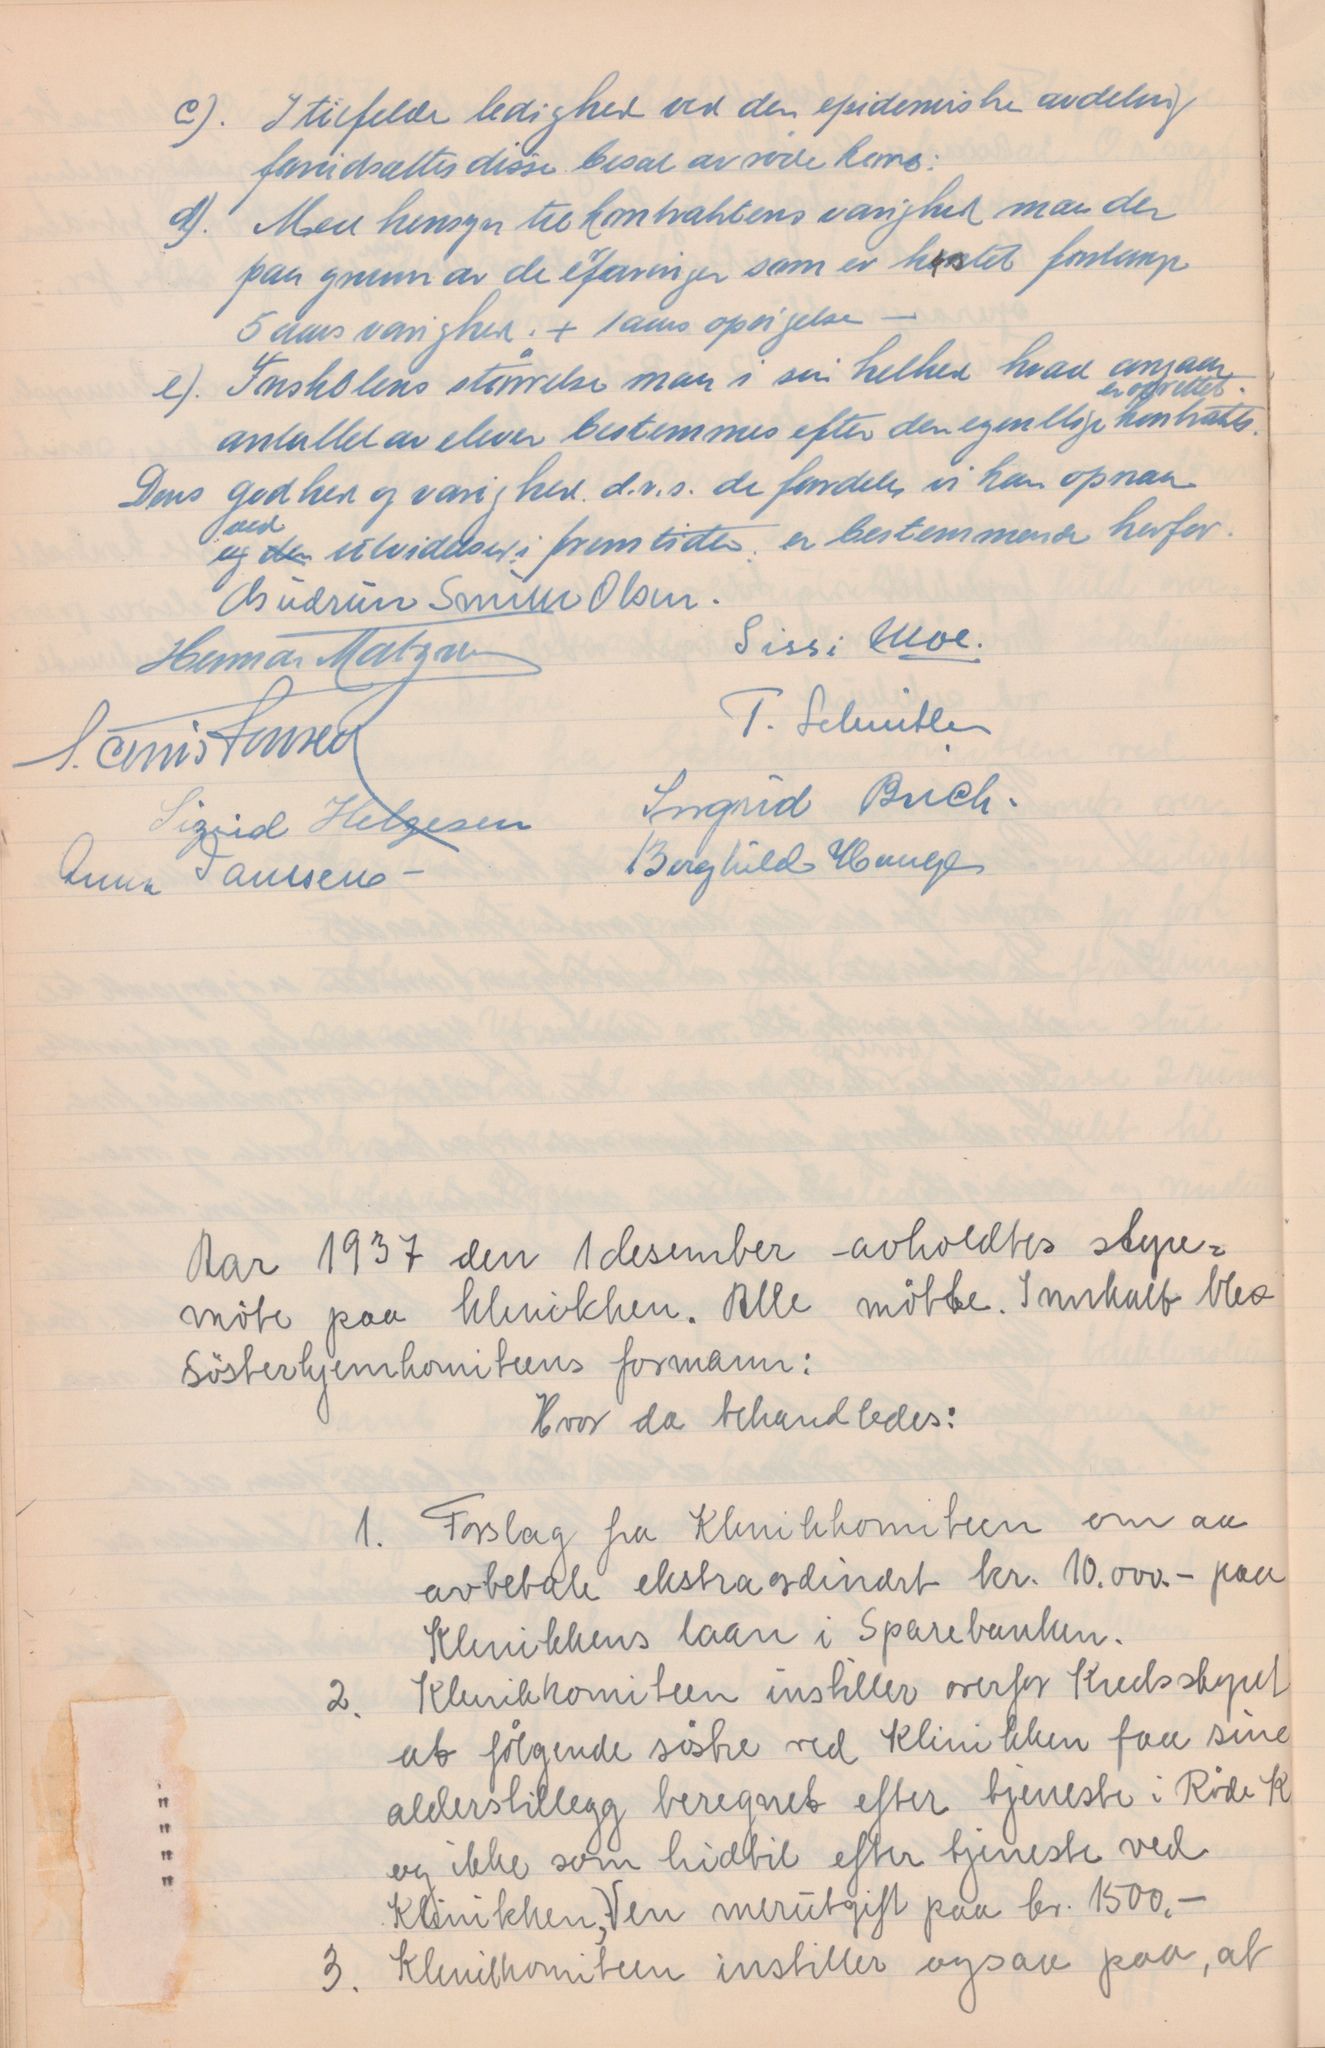 c). I tilfelde ledighed ved den epidemiske avdeling
forudsættes disse besat av røde kors.
d). Med hensyn til kontraktens varighed maa der
paa grunn av de erfaringer som er høstet forlange
5 aars varighed. + 1 aars opsigelse —
e). Inskolens størrelse maa i sin helhed hvad angaar
er oprettet.
antallet av elever bestemmes efter den egentlige kontrakts.
Dens godhed og varighed. d.v.s. de fordeler vi kan opnaa
ved
og den utvidelser i fremtiden. er bestemmende herfor.
Gudrun Smith Olsen.
Sissi Moe.
T. Schnitler
Sigrid Helgesen
Ingrid Buch.
Anna Janssen –
Borghild Hauge
Aar 1937 den 1 desember avholdtes styre=
möte paa klinikken. Alle mötte. Innkalt blev
Sösterhjemkomiteens formann:
Hvor da behandledes:
1. Forslag fra Klinikkomiteen om aa
avbetale ekstraordinært kr. 10.000.– paa
Klinikkens laan i Sparebanken.
2. Klinikkomiteen instiller overfor Kredsstyret
at fölgende söstre ved Klinikken faa sine
alderstillegg beregnet efter tjeneste i Röde K
og ikke som hidtil efter tjeneste ved
Klinikken, en merutgift paa kr. 1500,–
3. Klinikkomiteen instiller ogsaa paa, at